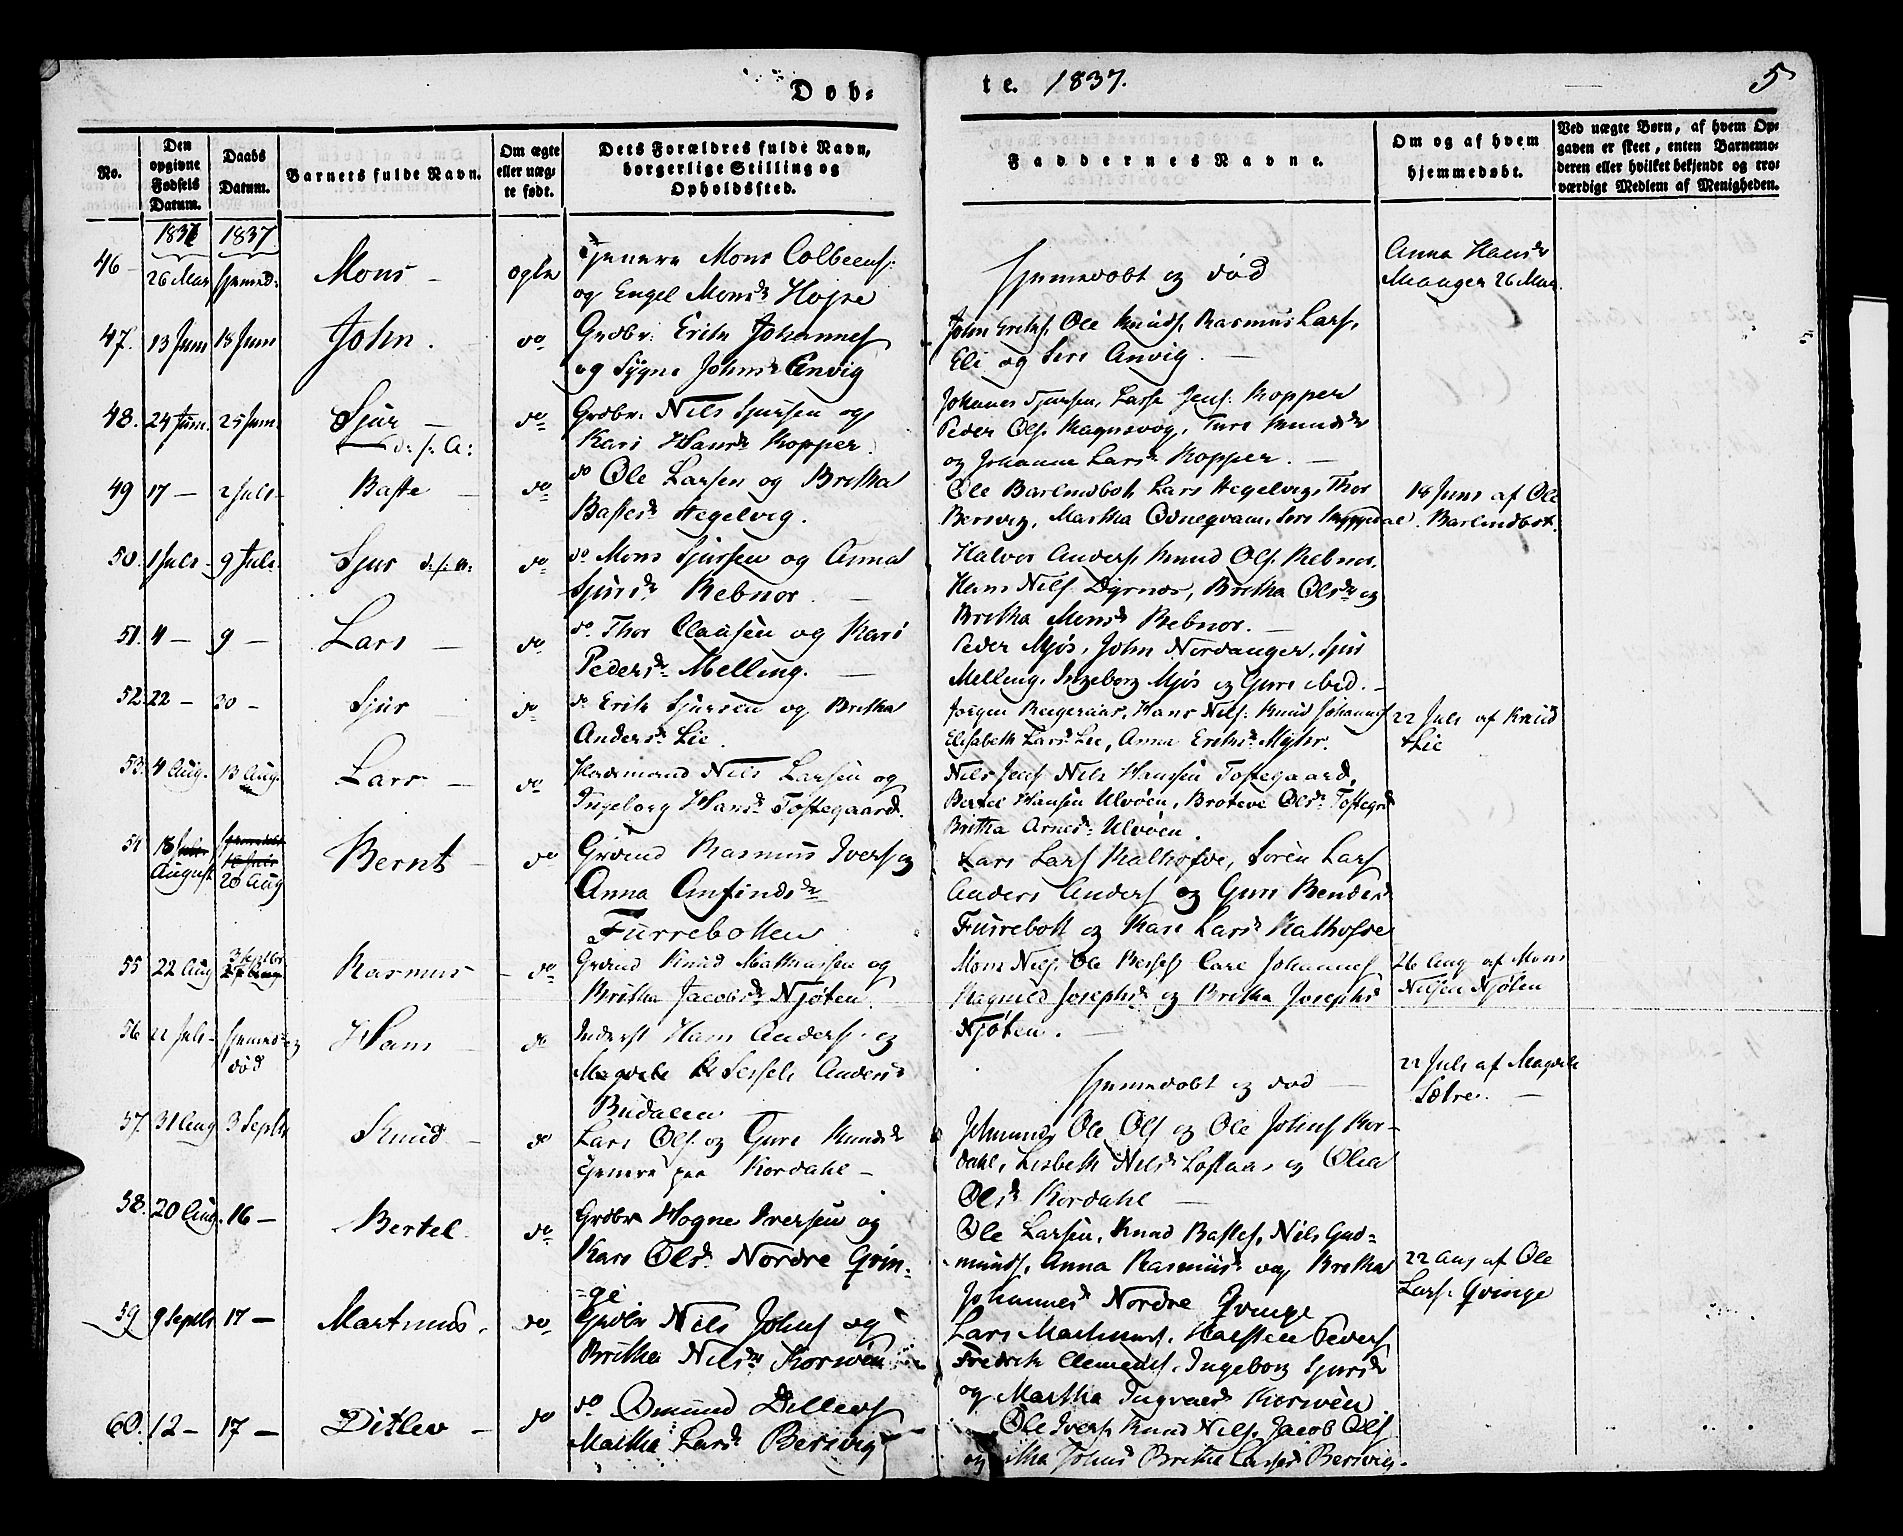 Døb-
te. 1837.
5
No.
Den opgivne Fødsels Datum.
Daabs Datum.
Barnets fulde Navn.
Om ægte eller uægte født.
Dets Forældres fulde Navn, borgerlige Stilling og Opholdssted.
Faddernes Navne.
Om og af hvem hjemmedøbt.
Ved uægte Børn, af hvem Opgaven er skeet, enten Barnemoderen eller hvilket bekjendt og troværdigt Medlem af Menigheden.
1837 1837
46 26 Mar hjemmed: Mons ægte
Tjenere Mons Colbeens:
og Engel Monsdr Hopse
hjemmedøbt og død
Anna Hansdr
Manger 26 Mar.
47. 13 Juni 18 Juni John. do
Grdbr: Erik Johannes
og Sygne Johnsdr Anvig
John Eriks. Ole Knuds. Rasmus Lars.
Eli og Siri Anvig.
48. 24 Juni. 25 Juni. Sjur d. f. A: do
Grdbr. Nils Sjursen og
Kari Hansdr Kopper.
Johanes Sjursen, Lasse Jens. Kopper
Peder Ols. Kagnsvog, Turi Knudsdr
og Johanna Larsdr Kopper.
49 17 - 2 Juli Baste do
do Ole Larsen og Britha
Bastesdr Hegelvig.
Ole Barlindbot Lars Hegelvig, Thor
Bersvig, Martha Odneqvam, Siri
18 Juni af Ole
Barlindbot.
50. 1 Juli 9 Juli Sjur d. f. A: do
do Mons Sjursen og Anna
Sjursdr Rebnor.
Halvor Anders. Knud Ols. Rebnor,
Hans Nils. Dyrnæs, Britha Olsdr og
Britha Monsdr Rebnor.
51. 4 - 9 - Lars do
do. Thor Clausen og Kari
Pedersdr Melling.
Peder Mjøs, John Nordanger, Sjur
Melling, Ingeborg Mjøs og Guri ibid.
52. 22 - 30 - Sjur do
do Erik Sjursen og Britha
Andersdr Lie.
Jørgen, Hans Nils. Knud Johannes
Elisabeth Larsdr Lie, Anna Eriksdr Myhr.
22 Juli af Knud
Lie
53. 4 Aug. 13 Aug. Lars do
Huusmand Nils Larsen og
Ingeborg Hansdr Toftegaard.
Nils Jens. Nils Hansen Toftegaard,
Bertel Hansen Ulvøen, Broteve Olsdr Toftegrd
Britha Arnesdr Ulvøen.
54 18 August 20 Aug Bernt do
Grdmd Rasmus Ivers og
Anna Anfindsdr
Furrebotten
Lars Lars Kalhofde, Soren Lars
Anders Anders og Guri Bendsdr
Furrebott og Kari Larsdr Kalhofde
55 22 Aug 3 Septbr Rasmus do
Grdmd Knud Mathiassen og
Britha Jacobsdr Njøten.
Mons Nils. Ole Besses Carl Johannes
Ragnild Josephsdr og Britha Josephsdr
Njøten.
26 Aug af Mons
Nilsen Njøten
56 22 Juli hjemmed: og død Hans do
Inderst Hans Anders. og
Sessele Andersdr
Budalen
hjemmedøbt og død
22 Juli af Magdele
Sætre.
57. 31 Aug 3 Septbr Knud do
Lars Ols. og Guri Knudsdr
Tjenere paa Kordahl
Ole Ols og Ole Johns Kor-
dahl, Lisbeth Nilsdr Loftaas og Olia
Olsdr Kordahl
58. 20 Aug. 16 - Bertel. do
Grdbr Hogne Iversen og
Kari Olsdr Nordre Qvin-
-ge
Ole Larsen, Knud Bastes, Nils Gud-
munds. Anna Rasmusdr og Britha
Johannesdr Nordre Qvinge
22 Aug af Ole
Lars. Qvinge
59 9 Septbr 17 - Martinus. do
Grdbr Nils Johns og
Britha Nilsdr Korsøen
Lars Mathias. Karsten Peders
Fredrik Clemets. Ingeborg Sjursdr
og Martha Ingvardsdr Korsøen
60. 12 - 17 - Ditlev do
do Omund Ditlevs
Martha Larsdr Bersvig
Ole Ivers. Knud Nils. Jacob Ols
og Johnsdr Britha Larsdr Bersvig.